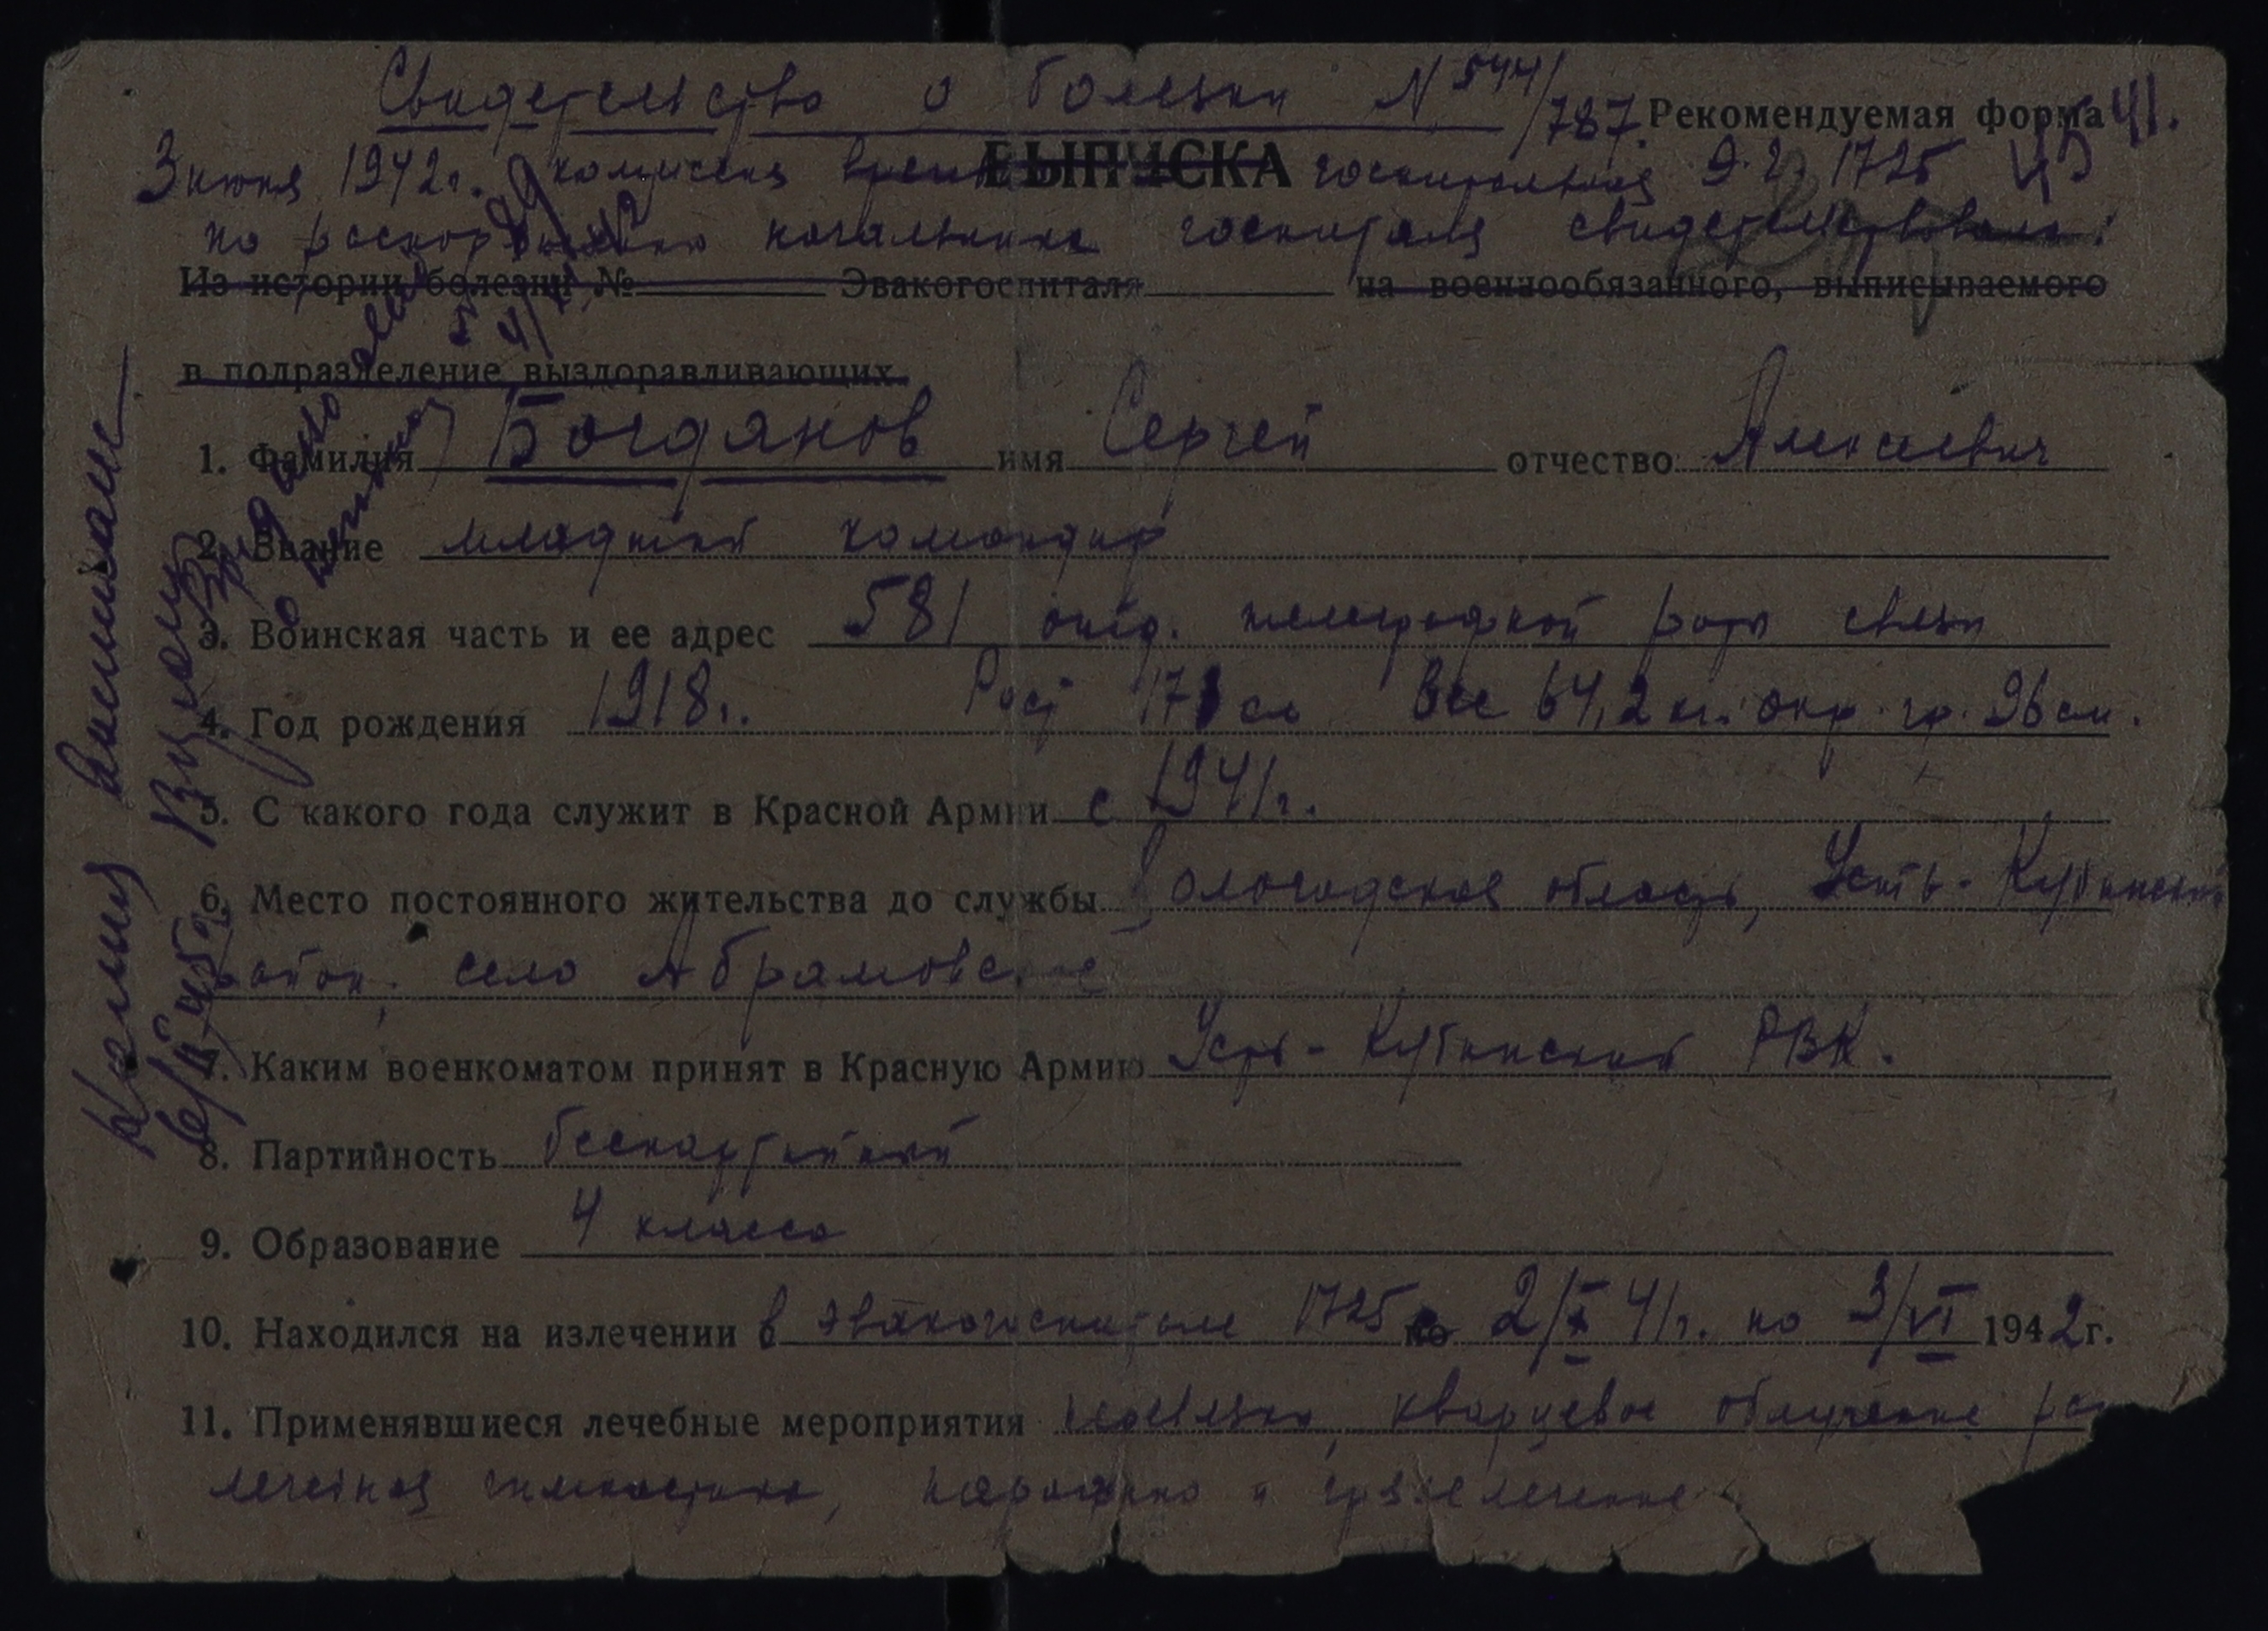 Свидетельство о болезни N 544/787.
Рекомендуемая форма
3 июня 1942г. комиссия ВЫПИСКА госпитальная Э.Г. 1725
по распоряжению начальника госпиталя свидетельствовали:
Из истории болезни № Эвакогоспиталя на военнообязанного, выписываемого
в подразделение выздоравливающих
1. Фамилия Богданов имя Сергей отчество Алексеевич
2. Звание младший командир
3. Воинская часть и ее адрес 581 отд. телеграфной роты связи
4. Год рождения 1918г. Рост 171 см Вес 64,2 кг. окр. гр. 96 см.
5. С какого года служит в Красной Армии с 1941г.
6. Место постоянного жительства до службы Вологодская область, Усть-Кубинский
район, село Абрамовское
7. Каким военкоматом принят в Красную Армию Усть-Кубинский РВК.
8. Партийность беспартийный
9. Образование 4 класса
10. Находился на излечении в эвакогоспитале 1725 с 2/X 41г. по 3/VI 1942г.
11. Применявшиеся лечебные мероприятия кварцевое облучение
лечебная гимнастика, парафино и грязелечение
Копия